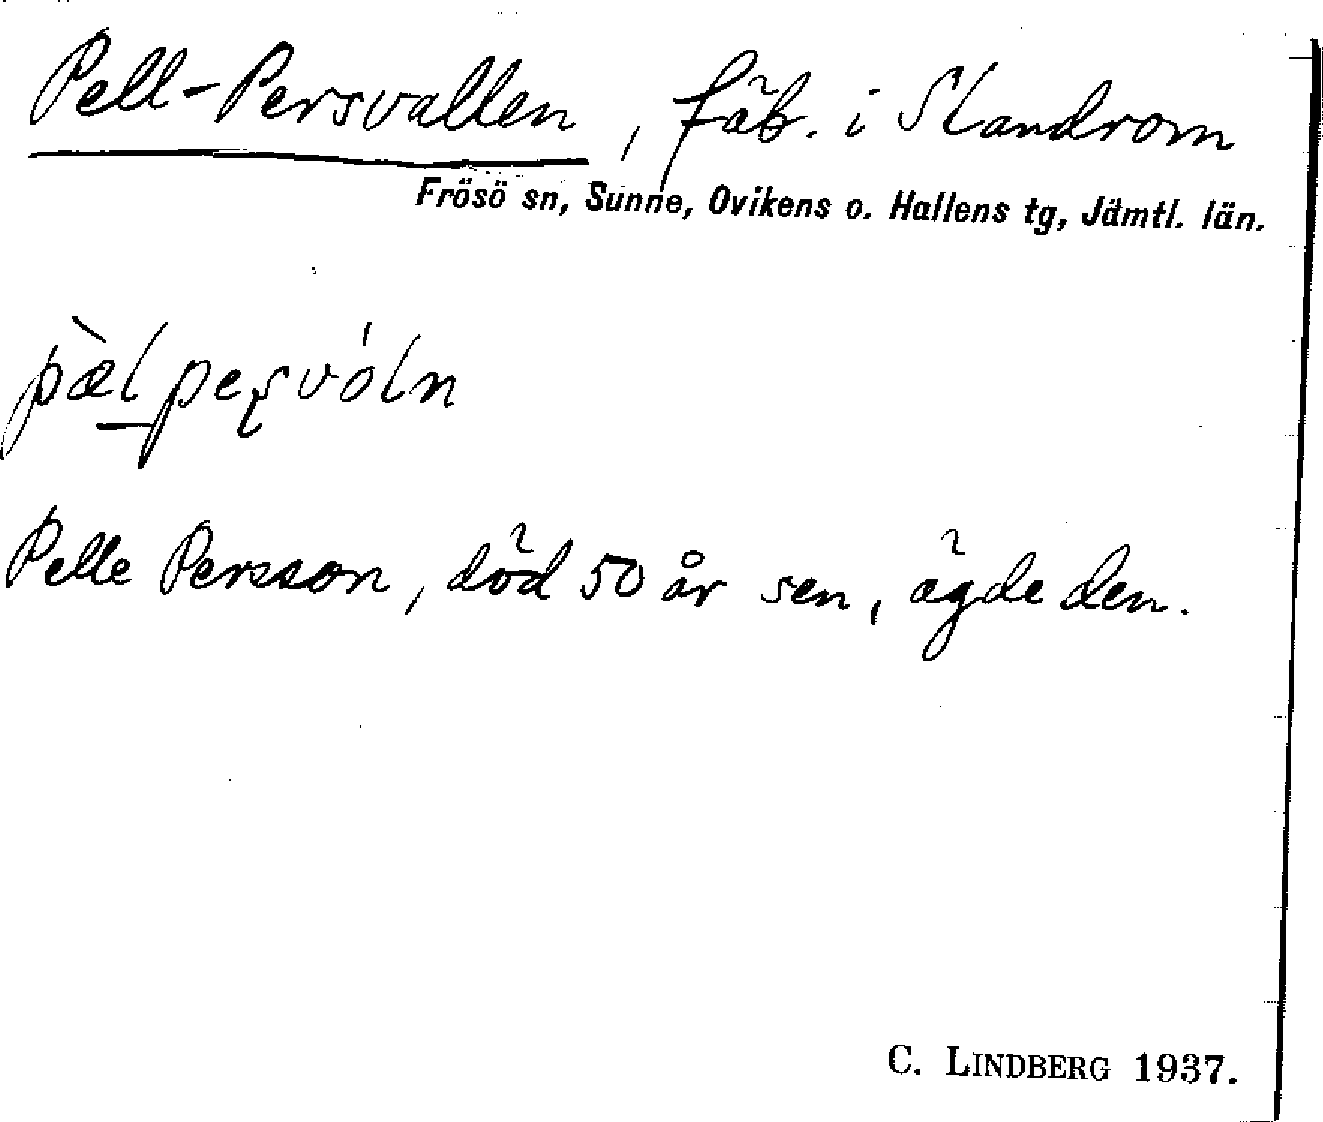 Pell-Persvallen, fäb. i Slandrom
Frösö sn, Sunne, Ovikens o. Hallens tg, Jämtl. län.
Pelle Persson, död 50 år sen, ägde den.
C. LINDBERG 1937.